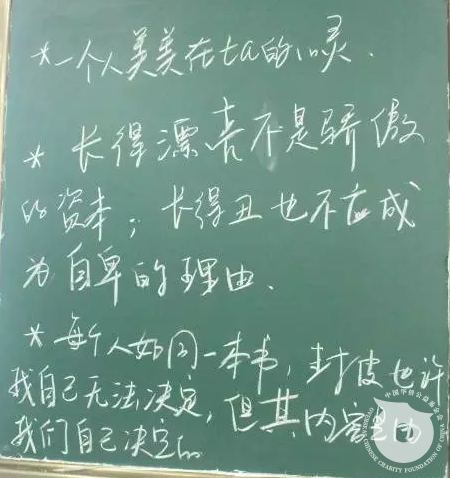 *一个人美美在ta的心灵.
* 长得漂亮不是骄傲
的资本；长得丑也不应成
为自卑的理由.
* 每个人如同一本书，封皮也许
我自己无法决定，但其内容是由
我们自己决定的
中国华侨公益基金会
OVERSEAS CHINESE CHARITY FOUNDATION OF CHINA